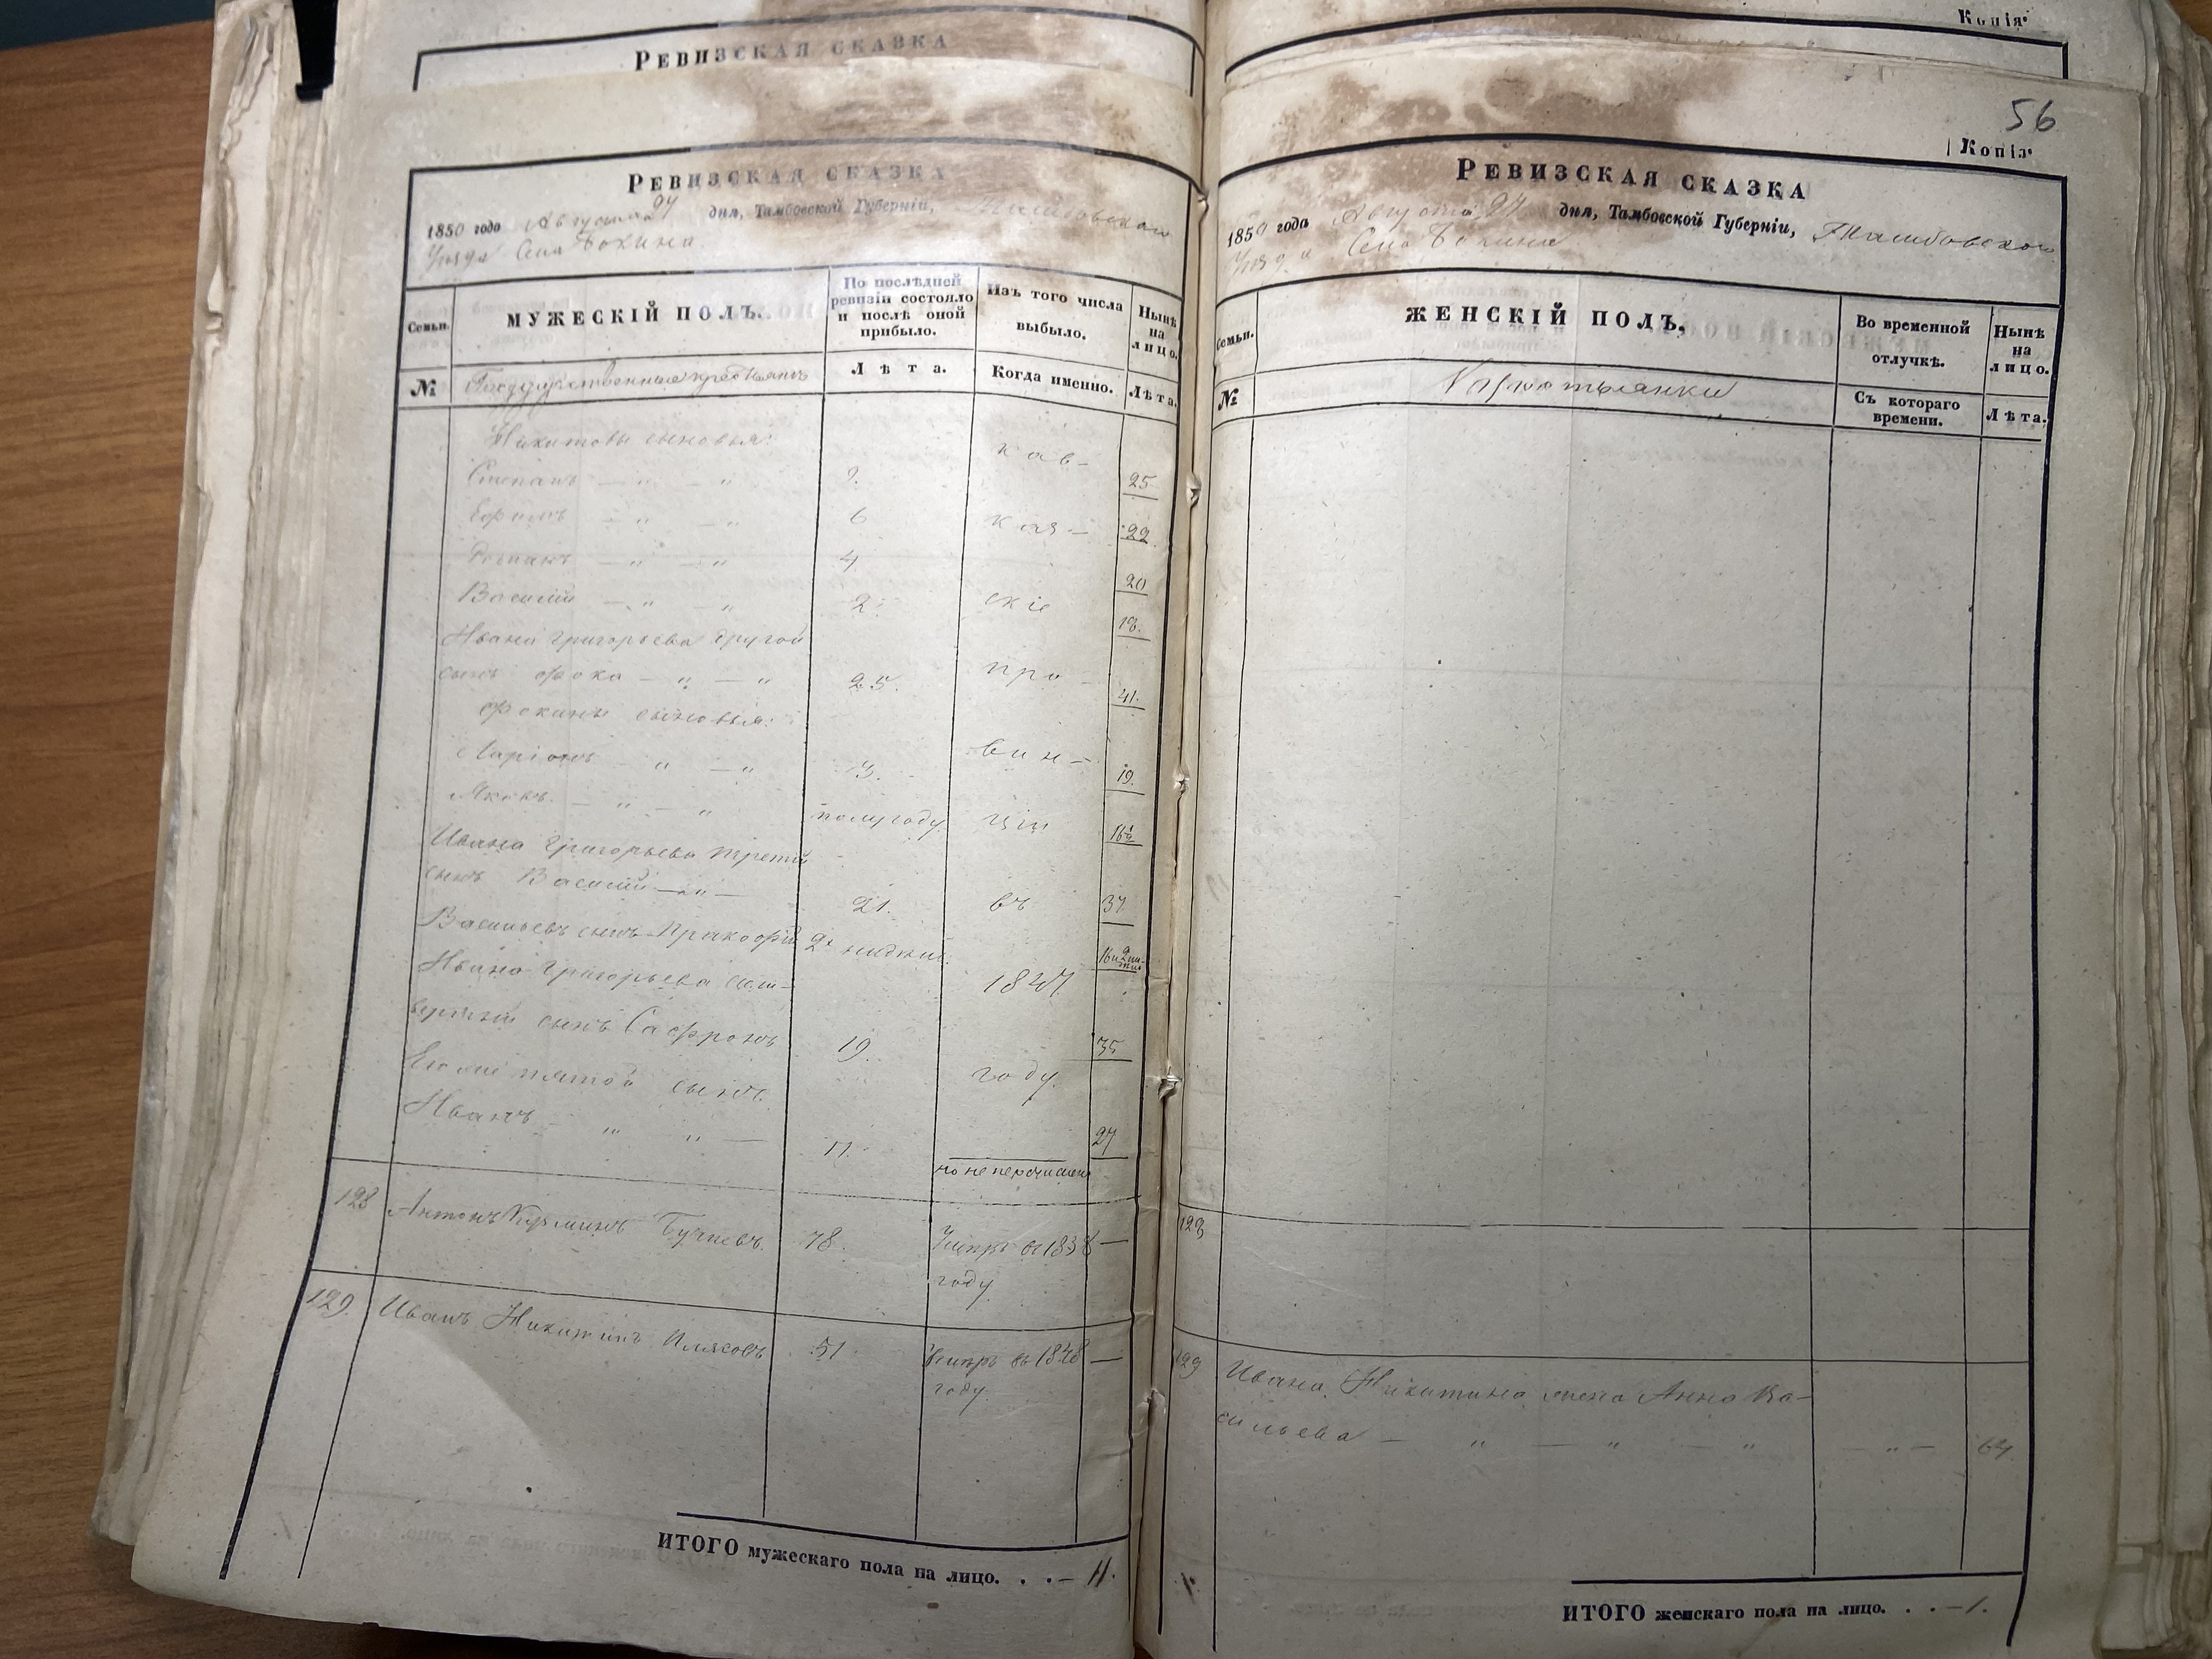 Ревизская сказка
Копія.
56
Копія.
Ревизская сказка
1850 года Августа 24 дня, Тамбовской Губерніи, Тамбовскаго
Уезда Села Бокина.
Семьи.
МУЖЕСКІЙ ПОЛЪ.
По послѣдней ревизіи состояло и послѣ оной прибыло.
Изъ того числа выбыло.
Нынѣ на лицо.
№
Государственные крестьяне
Лѣта.
Когда именно.
Лѣта.
Никитовы сыновья:
кав-
Степанъ — " — " 9. 25
Ефимъ — " — " 6 каз- 22
— " — " 4 20
Василій — " — " 2. скіе 18.
Ивана Григорьева другой
сынъ Фока — " — " 25. про- 41.
Фокины сыновья:
Ларіонъ — " — " 3. вин- 19.
Яковъ. — " — " полугоду ціи 16½
Ивана Григорьева третій
сынъ Василій — " — 21. въ 37.
Васильевъ сынъ Пракофій 2х недѣль.
Ивана Григорьева чет- 1847
вертый сынъ Сафронъ 19. 35
Его же пятой сынъ году.
Иванъ — " " — 11. 27
но не перечислены
128 Антонъ Кузминъ 78. Умеръ въ 1838 —
году.
129. Иванъ Никитинъ Илясовъ 51 Умеръ въ 1848 —
году.
ИТОГО мужескаго пола на лицо. . . — 11.
Ревизская сказка
1850 года Августа 24 дня, Тамбовской Губерніи, Тамбовскаго
Уезда Села Бокина
Семьи.
ЖЕНСКІЙ ПОЛЪ,
Во временной отлучкѣ.
Нынѣ на лицо.
№
Съ котораго времени.
Лѣта.
128
129 Ивана Никитина жена Анна Ва-
сильева — " — " — " — " — 64.
ИТОГО женскаго пола на лицо. . . — 1.